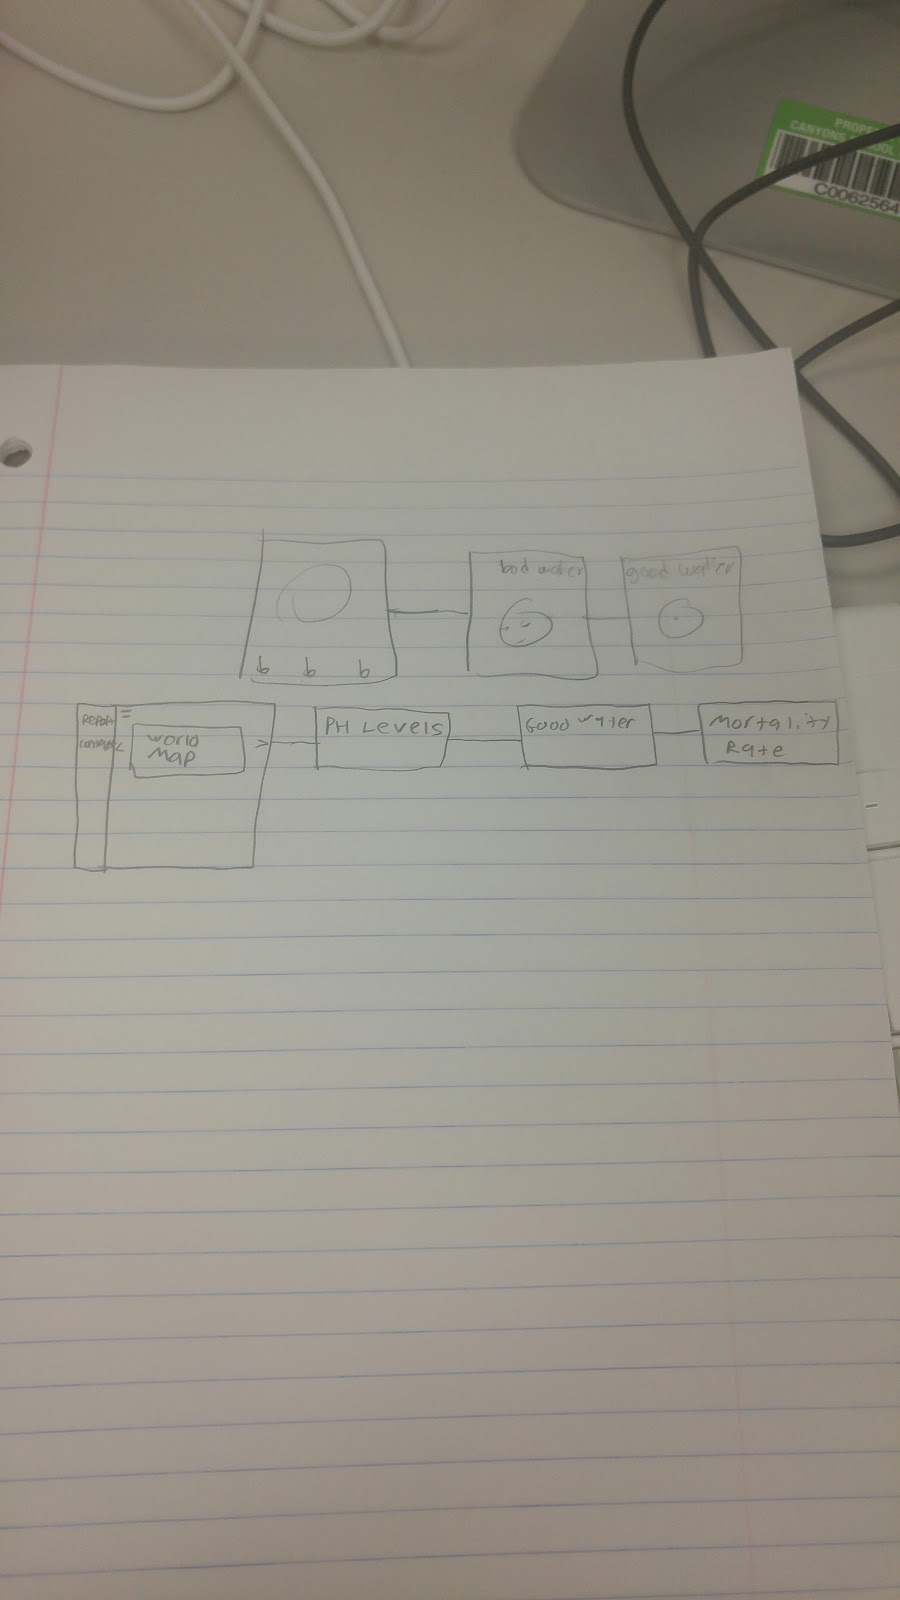 PROPE
CANYONS
C0062564
bad water
good water
b b b
Report
World
Map
< >
PH Levels
Good Water
Mortality
Rate